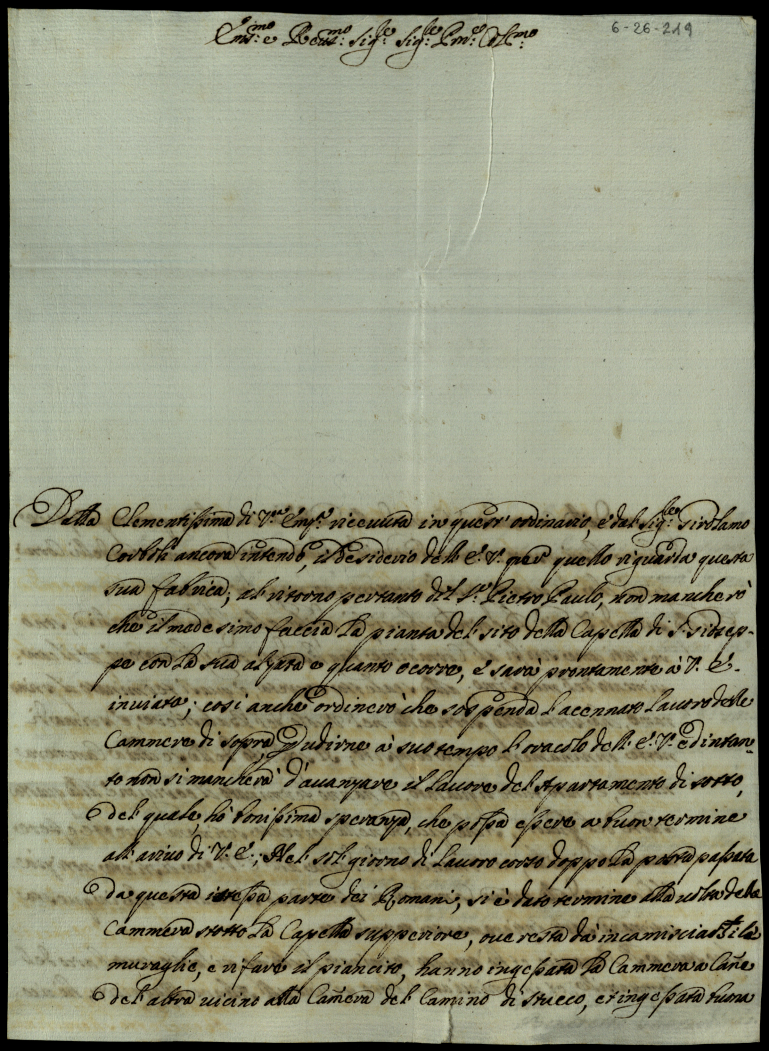 6-26-219
Em.mo e Reu.mo Sig.re Sig.re Pne Col.mo
Dalla Clementissima di V.ra Em.a riceuuta in quest' ordinario, e dal Sig.re Girolamo
Corboli ancora intendo, il desiderio dell' E. V. per quello riguarda questa
sua fabrica; al ritorno pertanto del S.r Pietro Paulo, non mancherò
che il medesimo faccia la pianta del sito della Capella di S. Giosep-
pe con la sua alzata e quanto ocorre, e sarà prontamente à V. E.
inuiata; cosi anche ordinerò che sospenda l'acennato lauoro delle
Cammere di sopra udirne à suo tempo l'oracolo dell' E. V. ed intan-
to non si mancherà d'auanzare il lauore del Apartamento di sotto,
del quale, hò bonissima speranza, che possa essere a buon termine
all' ariuo di V. E.; Nel sol giorno di lauoro corso doppo la posta passata
da questa istessa parte dei Romani, si è dato termine alla uolta della
Cammera sotto la Capella supperiore, oue resta dà incamisciarsi le
muraglie, e rifare il piancito, hanno ingessata la Cammera a Cane
del altra uicino alla Camera del Camino di stucco, et ingessata buona